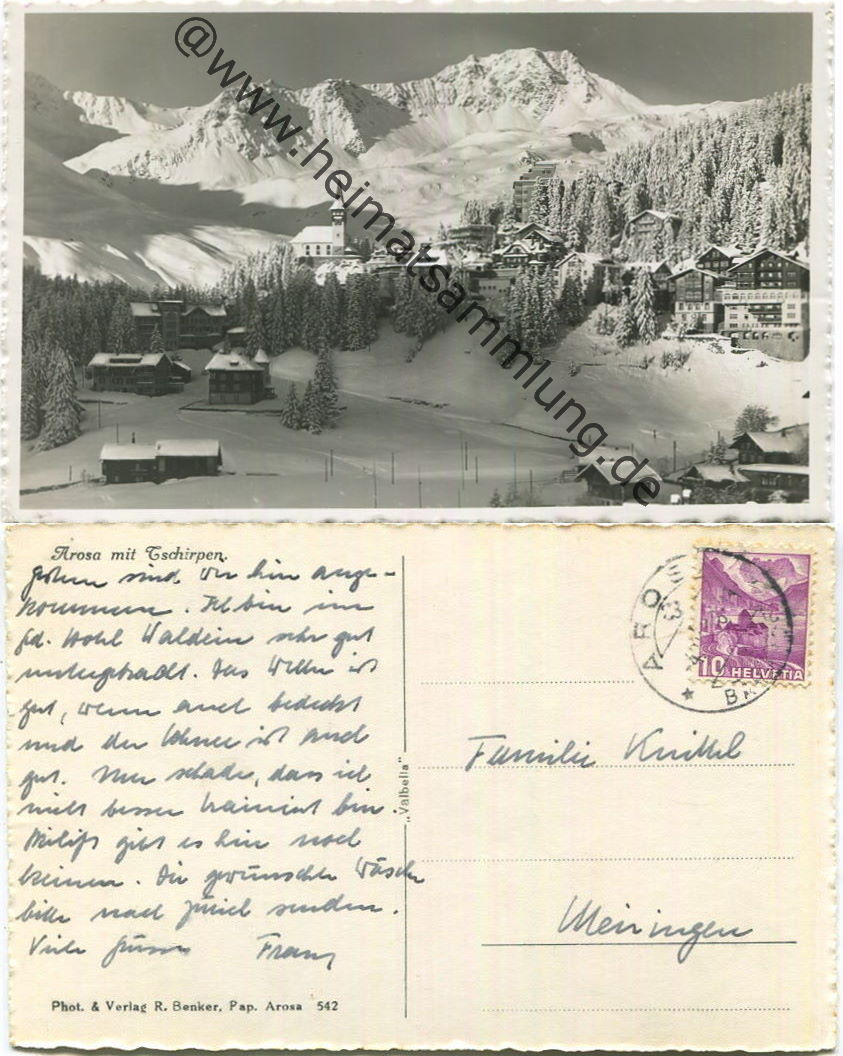 @www.heimatsammlung.de
Arosa mit Tschirpen.
sind wir hier ange-
kommen. Ich bin im
Waldein sehr gut
untergebracht. Das Wetter ist
gut, wenn auch bedeckt
und der Schnee ist auch
gut. Nur schade, dass ich
nicht besser trainiert bin.
gibt es hier noch
keinen. Die gewünschte Wäsche
bitte nach Zürich senden.
Viele Grüsse Franz
Phot. & Verlag R. Benker, Pap. Arosa 542
„Valbella"
AROS
10 HELVETIA
Familie Knittel
Meiringen